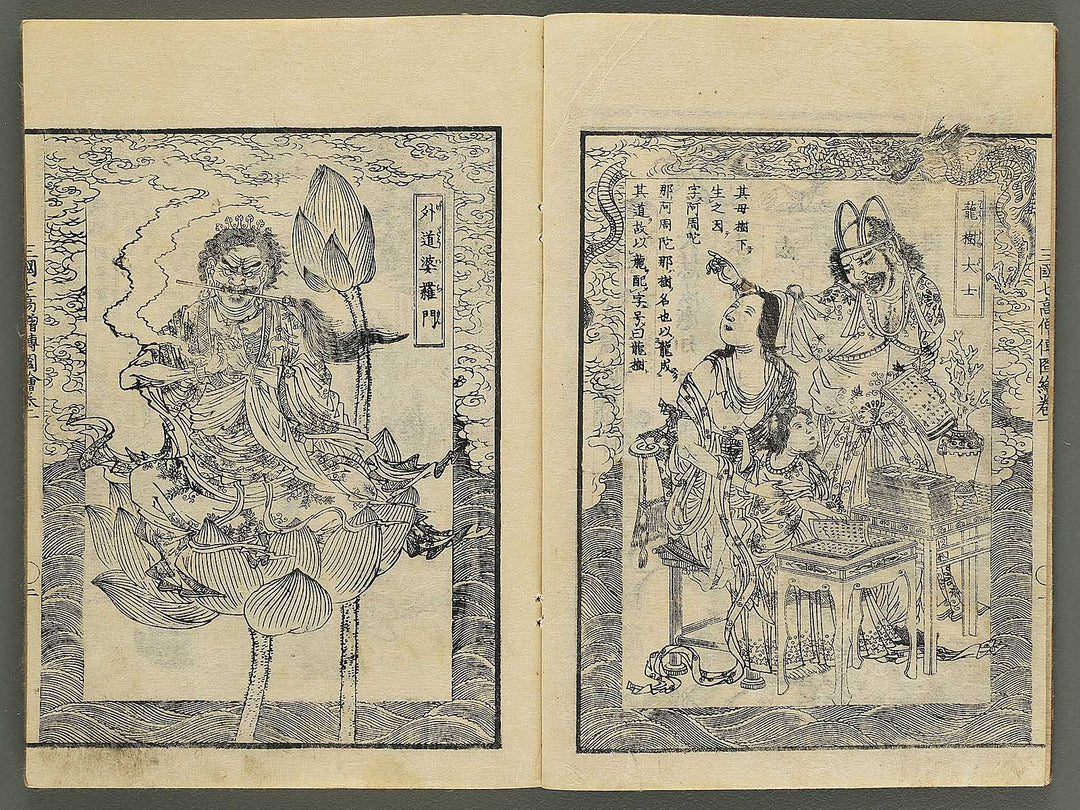 龍樹大士
其母樹下
生之因
字阿周陀
那阿周陀那樹名也以龍成
其道故以龍配字号曰龍樹
外道婆羅門
三國七高僧傳圖繪卷一
〇二